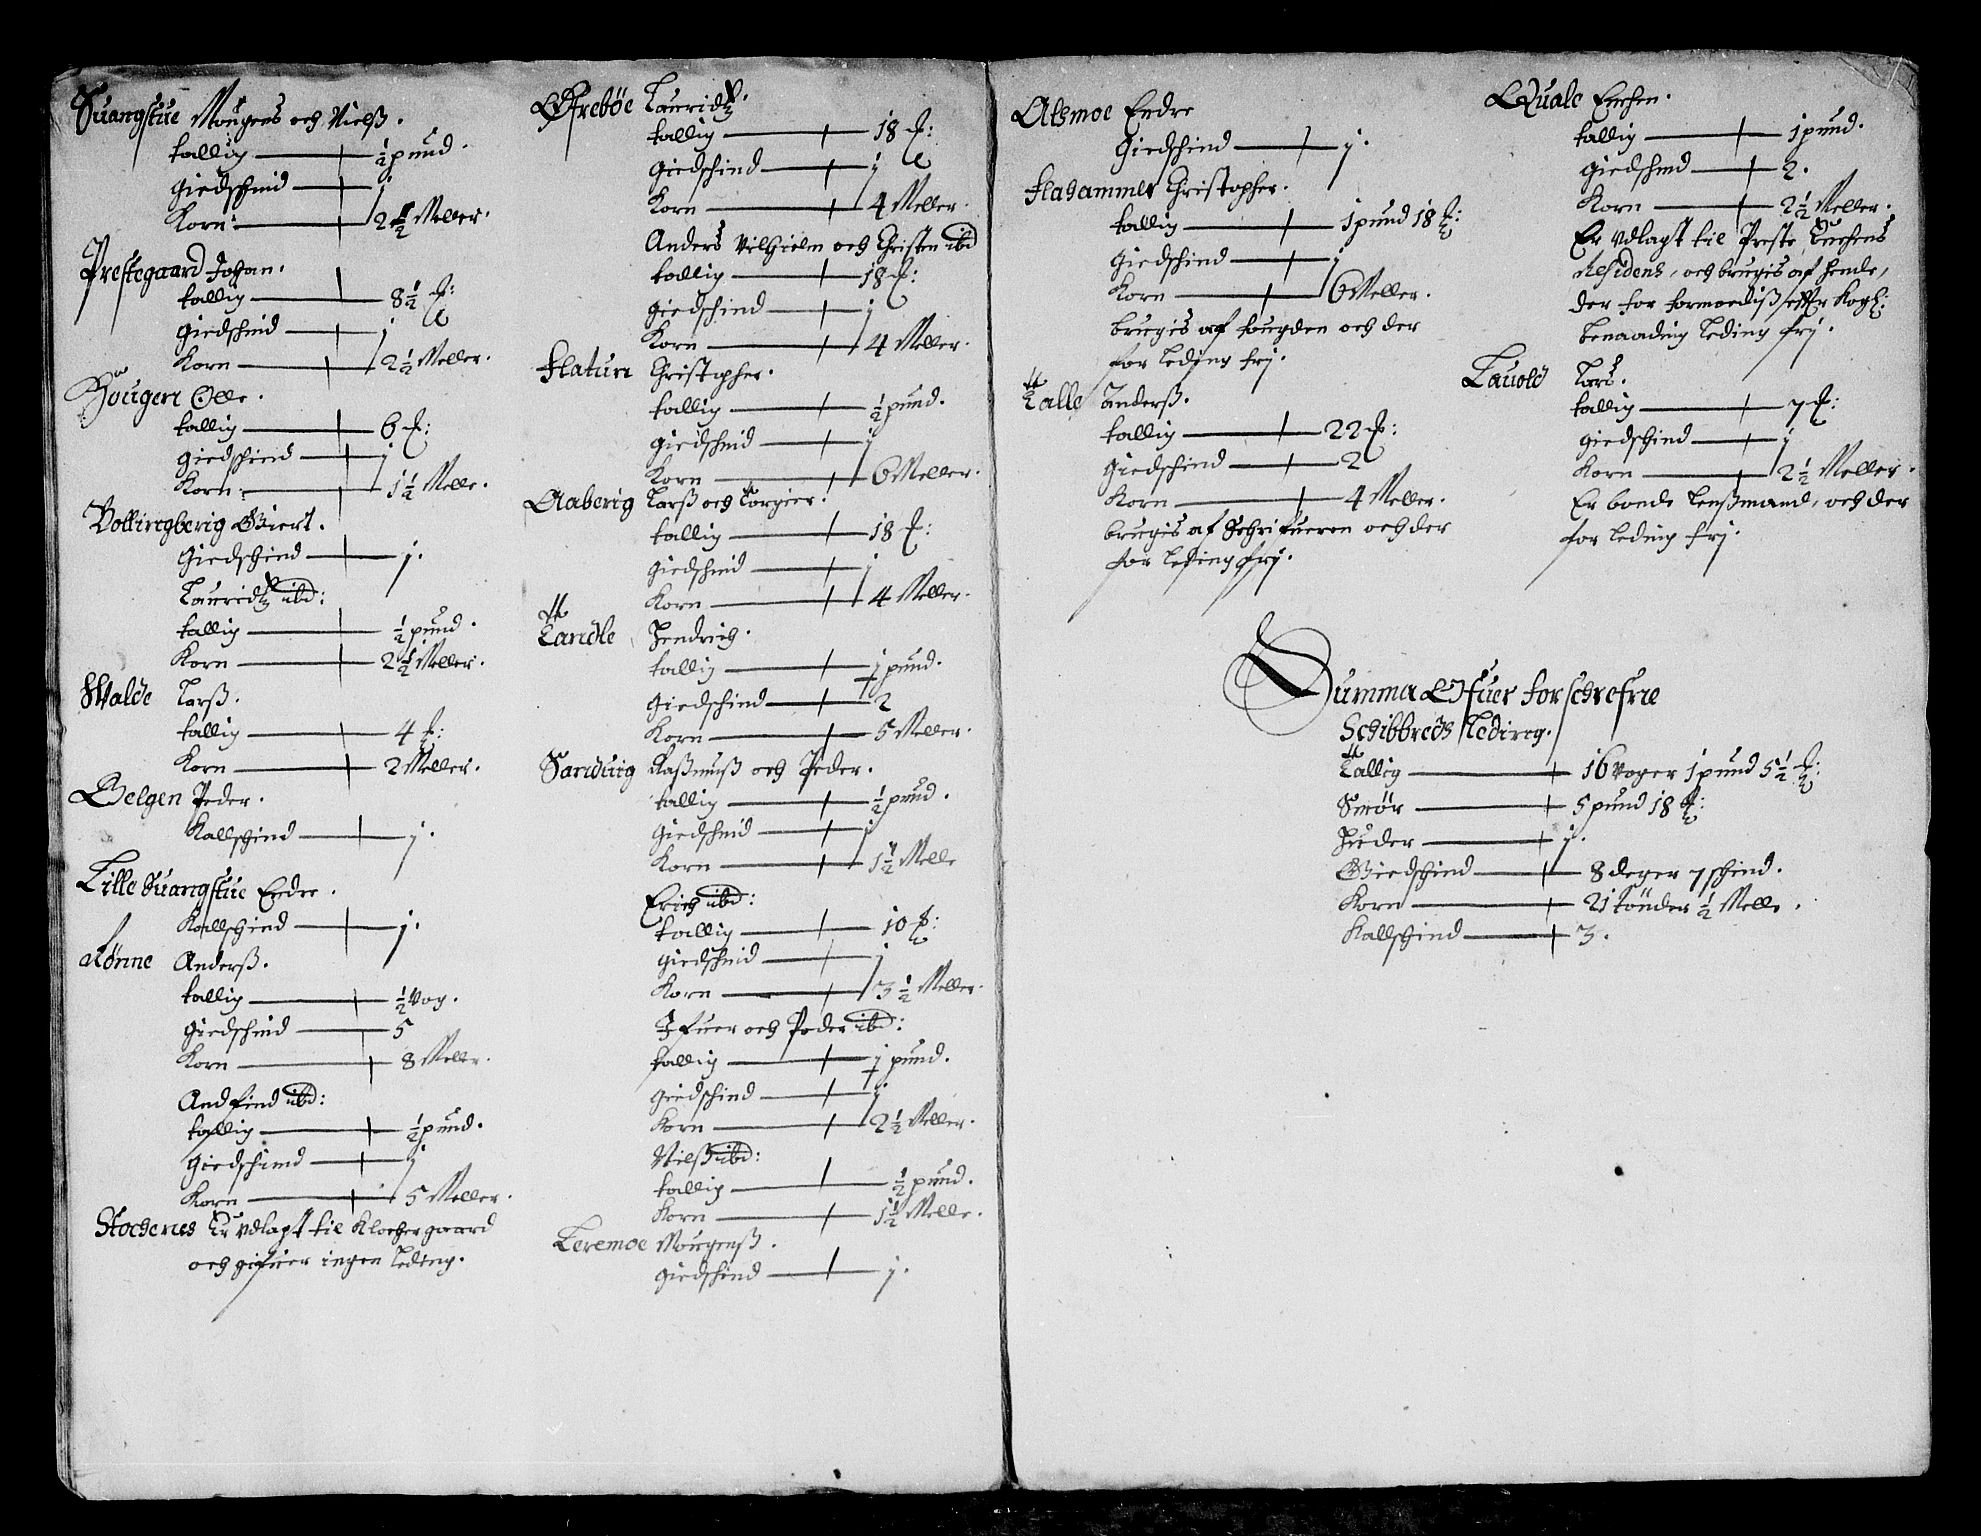 Suangstue Mougens och Nielß.
tallig ½ pund.
Giedschind j
Korn: 2½ Meller.
Prestegaard Johan.
tallig 8½ ℔:
Giedschind j
Korn 2½ Meller.
Hougen Olle.
tallig 6 ℔:
giedschind j
Korn: 1½ Melle.
Bollingberig Giert.
Giedschind j.
Lauridtz ibd:
tallig ½ pund.
Korn 2½ Meller.
Walde Larß.
tallig 4 ℔:
Korn 2 Meller.
Helgen Peder.
Kallschind j.
Lille Suangstue Endre.
Kallschind j.
Rønne Anderß.
tallig ½ vog.
Giedschind 5
Korn 8 Meller.
Andfind ibd:
tallig ½ pund.
Giedschind j
Korn 5 Meller.
Stochenes Er vdlagt til Klocher gaard
och gifuer ingen Leding.
Øfrebøe Lauridtz.
tallig 18 ℔:
giedschind j
Korn 4 Meller.
Anders Vilhielm och Christen ibd
tallig 18 ℔:
giedschind j
Korn 4 Meller.
Flatun Christopher.
tallig ½ pund.
giedschind j
Korn 6 Meller.
Aaberig Larß och Torgier.
tallig 18 ℔:
giedschind j
Korn 4 Meller.
Tandle Hendrich.
tallig j pund.
giedschind 2
Korn 5 Meller.
Sanduig Raßmuß och Peder.
tallig ½ pund.
giedschind j
Korn 1½ Melle
Erich ibd:
tallig 10 ℔:
giedschind j
Korn 3½ Meller.
Ifuer och Peder ibd:
tallig j pund.
giedschind j
Korn 2½ Meller.
Nielß ibd:
tallig ½ pund.
Korn 1½ Melle.
Leremoe Mougenß.
giedschind j.
Atsmoe Endre
Giedschind j.
Flahammer Christopher.
tallig 1 pund 18 ℔:
giedschind j
Korn 6 Meller.
bruges af fougden och der
for leding frj.
Talle Anderß.
tallig 22 ℔:
Giedschind 2
Korn 4 Meller.
bruges af Schrifueren och der
for leding frj.
Quale Enchen.
tallig 1 pund.
giedschind 2.
Korn 2½ Meller.
Er vdlagt til Preste Enchens
Residens, och bruges af hende,
der for formoediß effter Kogl:
benaading leding frj.
Lauold Lars.
tallig 7 ℔:
giedschind j
Korn 2½ Meller.
Er bonde Lenßmand, och der
for leding frj.
Summa Ofuer forschrefne
Schibbreds Leding.
Tallig 16 voger 1 pund 5½ ℔:
Smør 5 pund 18 ℔:
Huder j.
Giedschind 8 deger 7 schind.
Korn 21 tønder ½ Melle.
Kallschind 3.